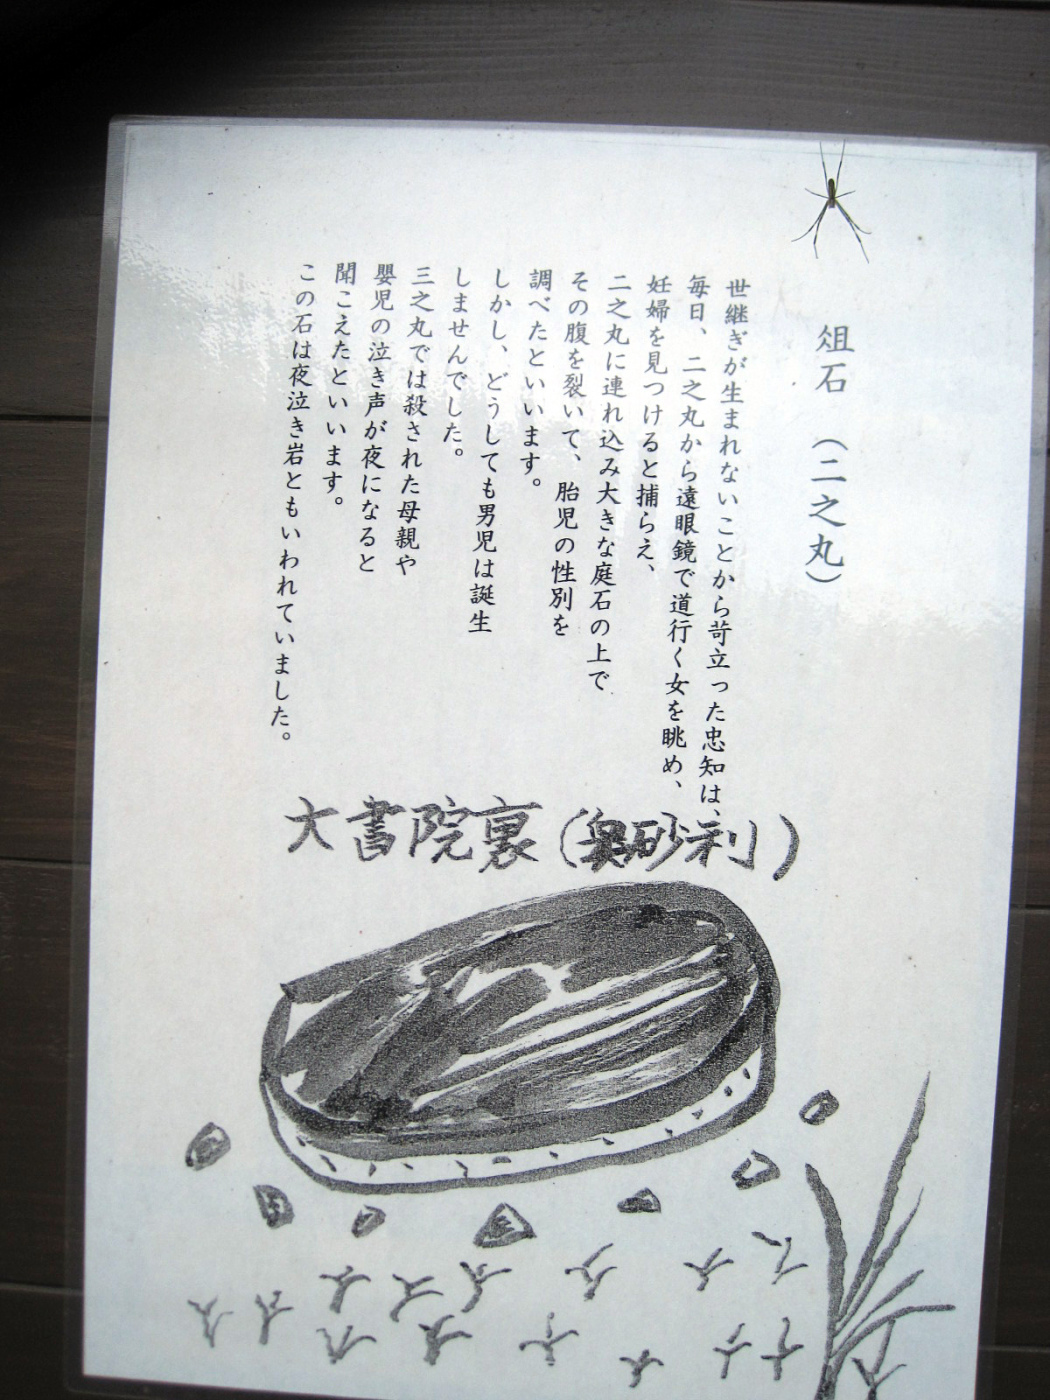 俎石　（二之丸）
世継ぎが生まれないことから苛立った忠知は、
毎日、二之丸から遠眼鏡で道行く女を眺め、
妊婦を見つけると捕らえ、
二之丸に連れ込み大きな庭石の上で
その腹を裂いて、胎児の性別を
調べたといいます。
しかし、どうしても男児は誕生
しませんでした。
三之丸では殺された母親や
嬰児の泣き声が夜になると
聞こえたといいます。
この石は夜泣き岩ともいわれていました。
大書院裏（奥砂利）